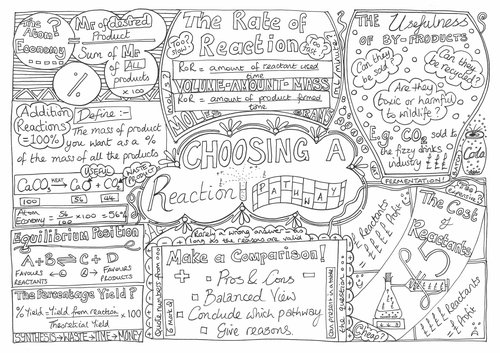 The Atom? Economy
Mr of desired Product
Sum of Mr of ALL products
x 100
%
Addition Reactions = 100%
Define :-
The mass of product
you want as a %
of the mass of all the products
USEFUL
WASTE PRODUCT
CaCO3 HEAT CaO + CO2
100 56 44
Atom Economy = 56 / 100 x 100 = 56%
Equilibrium Position
A + B ⇌ C + D
FAVOURS REACTANTS
FAVOURS PRODUCTS
The Percentage Yield?
% Yield = Yield from reaction x 100
Theoretical Yield
SYNTHESIS → WASTE → TIME → MONEY
The Rate of
Reaction
Too slow?
Too Fast
RoR = amount of reactant used
time
VOLUME-AMOUNT-MASS
RoR = amount of product formed
time
MOLES
CHOOSING A
Reaction PATHWAY
Rarely a wrong answer as
long as the reasons are valid
Make a Comparison!
+ -
Pros & Cons
Balanced View
Conclude which pathway
Give reasons.
Quote numbers from
6 Marks
can present in a table
the question
THE Usefulness
OF BY-PRODUCTS
Can they be sold?
Can they be recycled?
Are they
toxic or harmful
to wildlife?
E.g. CO2 sold to
the fizzy drinks
industry £££££
Cola
FERMENTATION!
The Cost of Reactants
£5
Reactants
Profit
Reactants
Profit
Cheap?